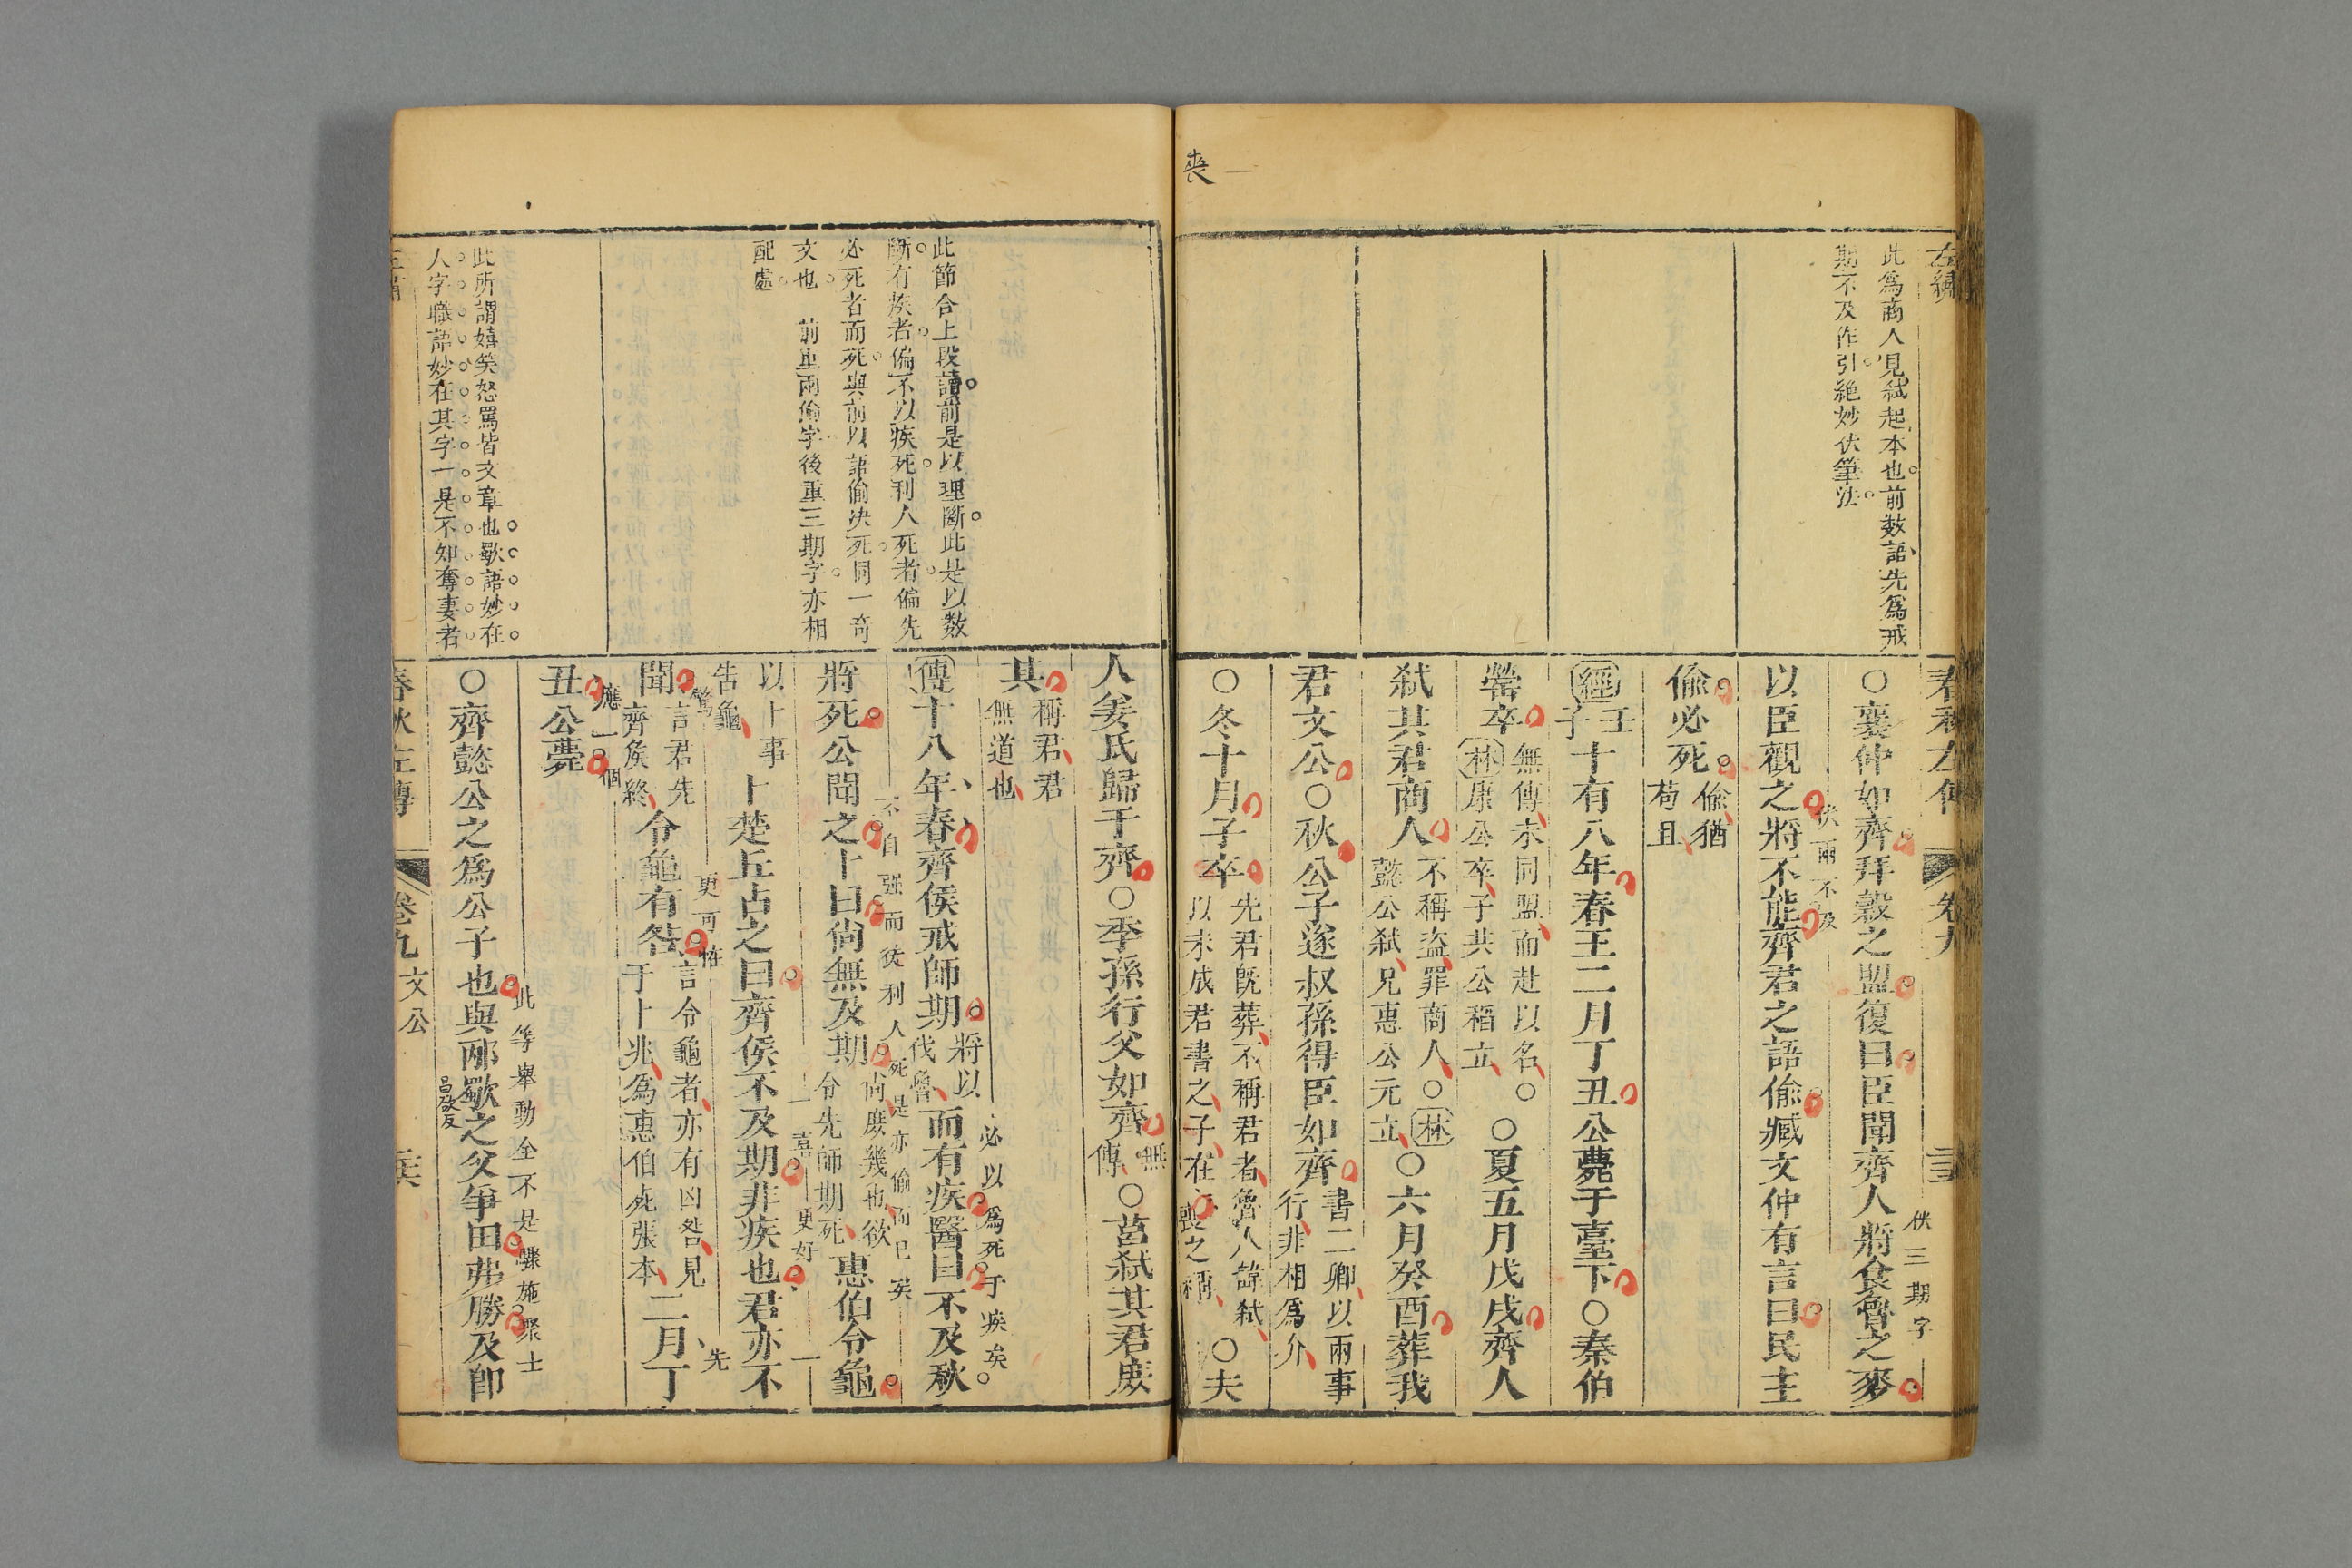 喪
左繡
此爲商人見弑起本也前數語先爲戒
期不及作引絶妙伏筆法
春秋左傳
卷九
○襄仲如齊拜穀之盟復曰臣聞齊人將食魯之麥
伏三期字
以臣觀之將不能齊君之語偷臧文仲有言曰民主
伏兩不及
偷必死偷猶苟且
經壬子十有八年春王二月丁丑公薨于臺下○秦伯
罃卒無傳未同盟而赴以名○林康公卒子共公稻立○夏五月戊戌齊人
弑其君商人不稱盜罪商人○林懿公弑兄惠公元立○六月癸酉葬我
君文公○秋公子遂叔孫得臣如齊書二卿以兩事行非相爲介
○冬十月子卒先君旣葬不稱君者魯人諱弑以未成君書之子在喪之稱○夫
人姜氏歸于齊○季孫行父如齊無傳○莒弑其君庶
其稱君君無道也
傳十八年春齊侯戒師期將以伐魯而有疾醫曰不及秋
必以爲死于疾矣
將死公聞之卜曰尚無及期尚庶幾也欲令先師期死惠伯令龜
不自強而徒利人死是亦偷而已矣
以卜事告龜卜楚丘占之曰齊侯不及期非疾也君亦不
一喜更好
聞言君先齊侯終令龜有咎言令龜者亦有凶咎見于卜兆爲惠伯死張本二月丁
驚
更可怪
先
丑公薨
應一個
○齊懿公之爲公子也與邴歜之父爭田弗勝及卽
昌欲反
此等舉動全不是驟施聚士
此節合上段讀前是以理斷此是以數
斷有疾者偏不以疾死刊人死者偏先
必死者而死與前以語偷决死同一奇
文也 前重兩偷字後重三期字亦相
配處
此所謂嬉笑怒罵皆文章也歜語妙在
人字職語妙在其字一是不知奪妻者
春秋左傳
卷九 文公